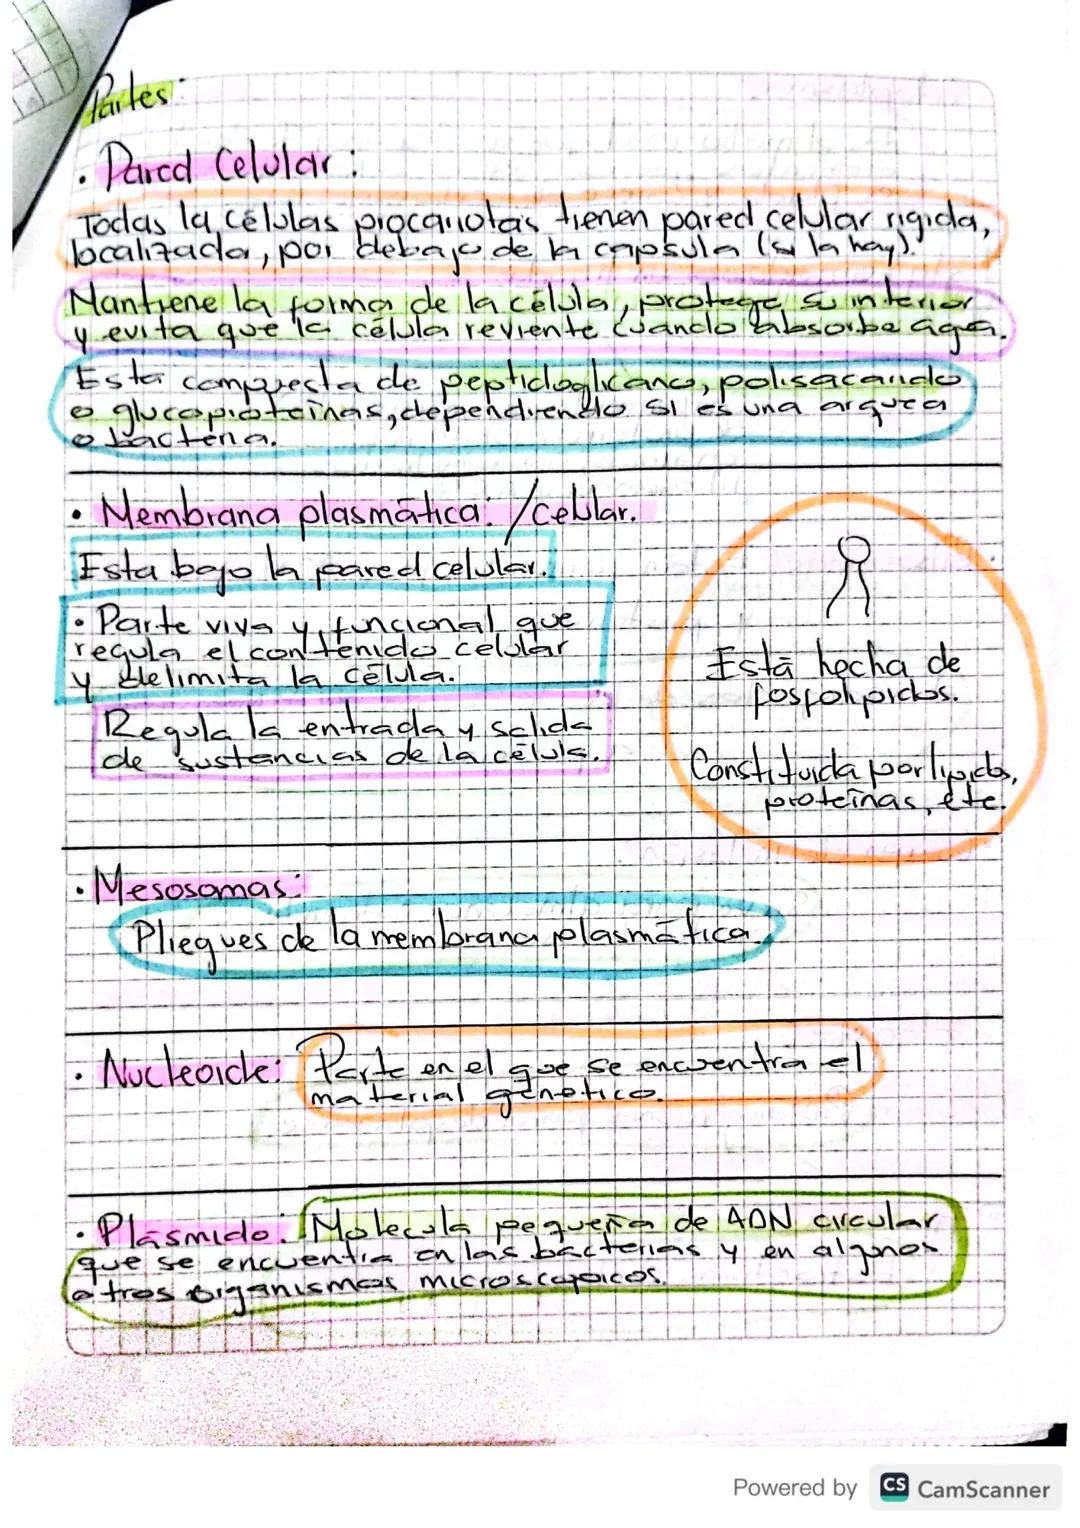 Partes:
· Pared Celular:
Todas la células procariotas tienen pared celular rigida,
localizada, por debajo de la capsula (si la hay).
Mantiene la forma de la célula, protege su interior
y evita que la célula reviente cuando absorbe agua.
Esta compuesta de peptidoglicano, polisacarido
o glucoproteinas, dependiendo si es una arquea
o bacteria.
· Membrana plasmática: /celular.
Esta bajo la pared celular.
· Parte viva y funcional que
regula el contenido celular
y delimita la célula.
Regula la entrada y salida
de sustancias de la célula.
Está hecha de
fosfolipidos.
Constituida por lipidos,
proteínas, etc.
· Mesosomas:
Pliegues de la membrana plasmática.
· Nucleoide: Parte en el que se encuentra el
material genetico.
· Plásmido: Molecula pequeña de ADN circular
que se encuentra en las bacterias y en algunos
otros organismos microscopicos.
Powered by CS CamScanner